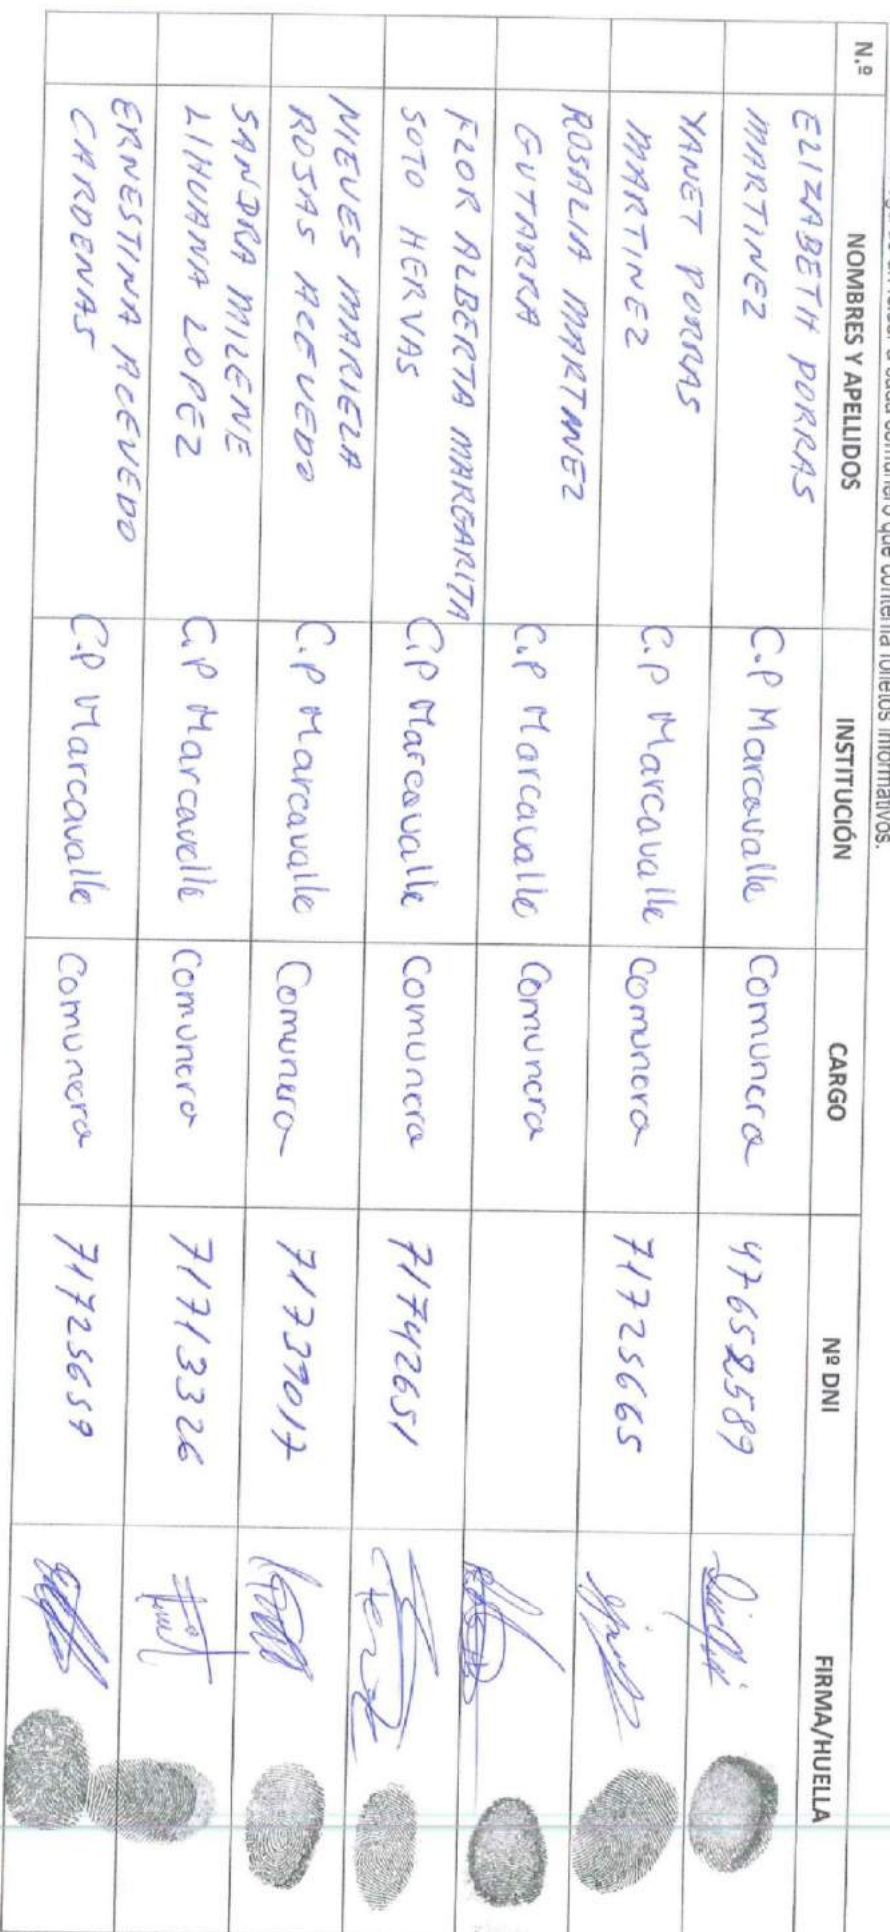 a cada comunero que contenía folletos informativos.
N.º NOMBRES Y APELLIDOS INSTITUCIÓN CARGO Nº DNI FIRMA/HUELLA
ELIZABETH PORRAS
MARTINEZ
C.P Marcavalle Comunera 47652589
YANET PORRAS
MARTINEZ
C.P Marcavalle Comunera 71725665
ROSALIA MARTINEZ
GUTARRA
C.P Marcavalle Comunera
FLOR ALBERTA MARGARITA
SOTO HERVAS
C.P Marcavalle Comunera 71742651
NIEVES MARIELA
ROSAS ACEVEDO
C.P Marcavalle Comunera 71739017
SANDRA MILENE
LIHUANA LOPEZ
C.P Marcavalle Comunera 71713326
ERNESTINA ACEVEDO
CARDENAS
C.P Marcavalle Comunera 71725659